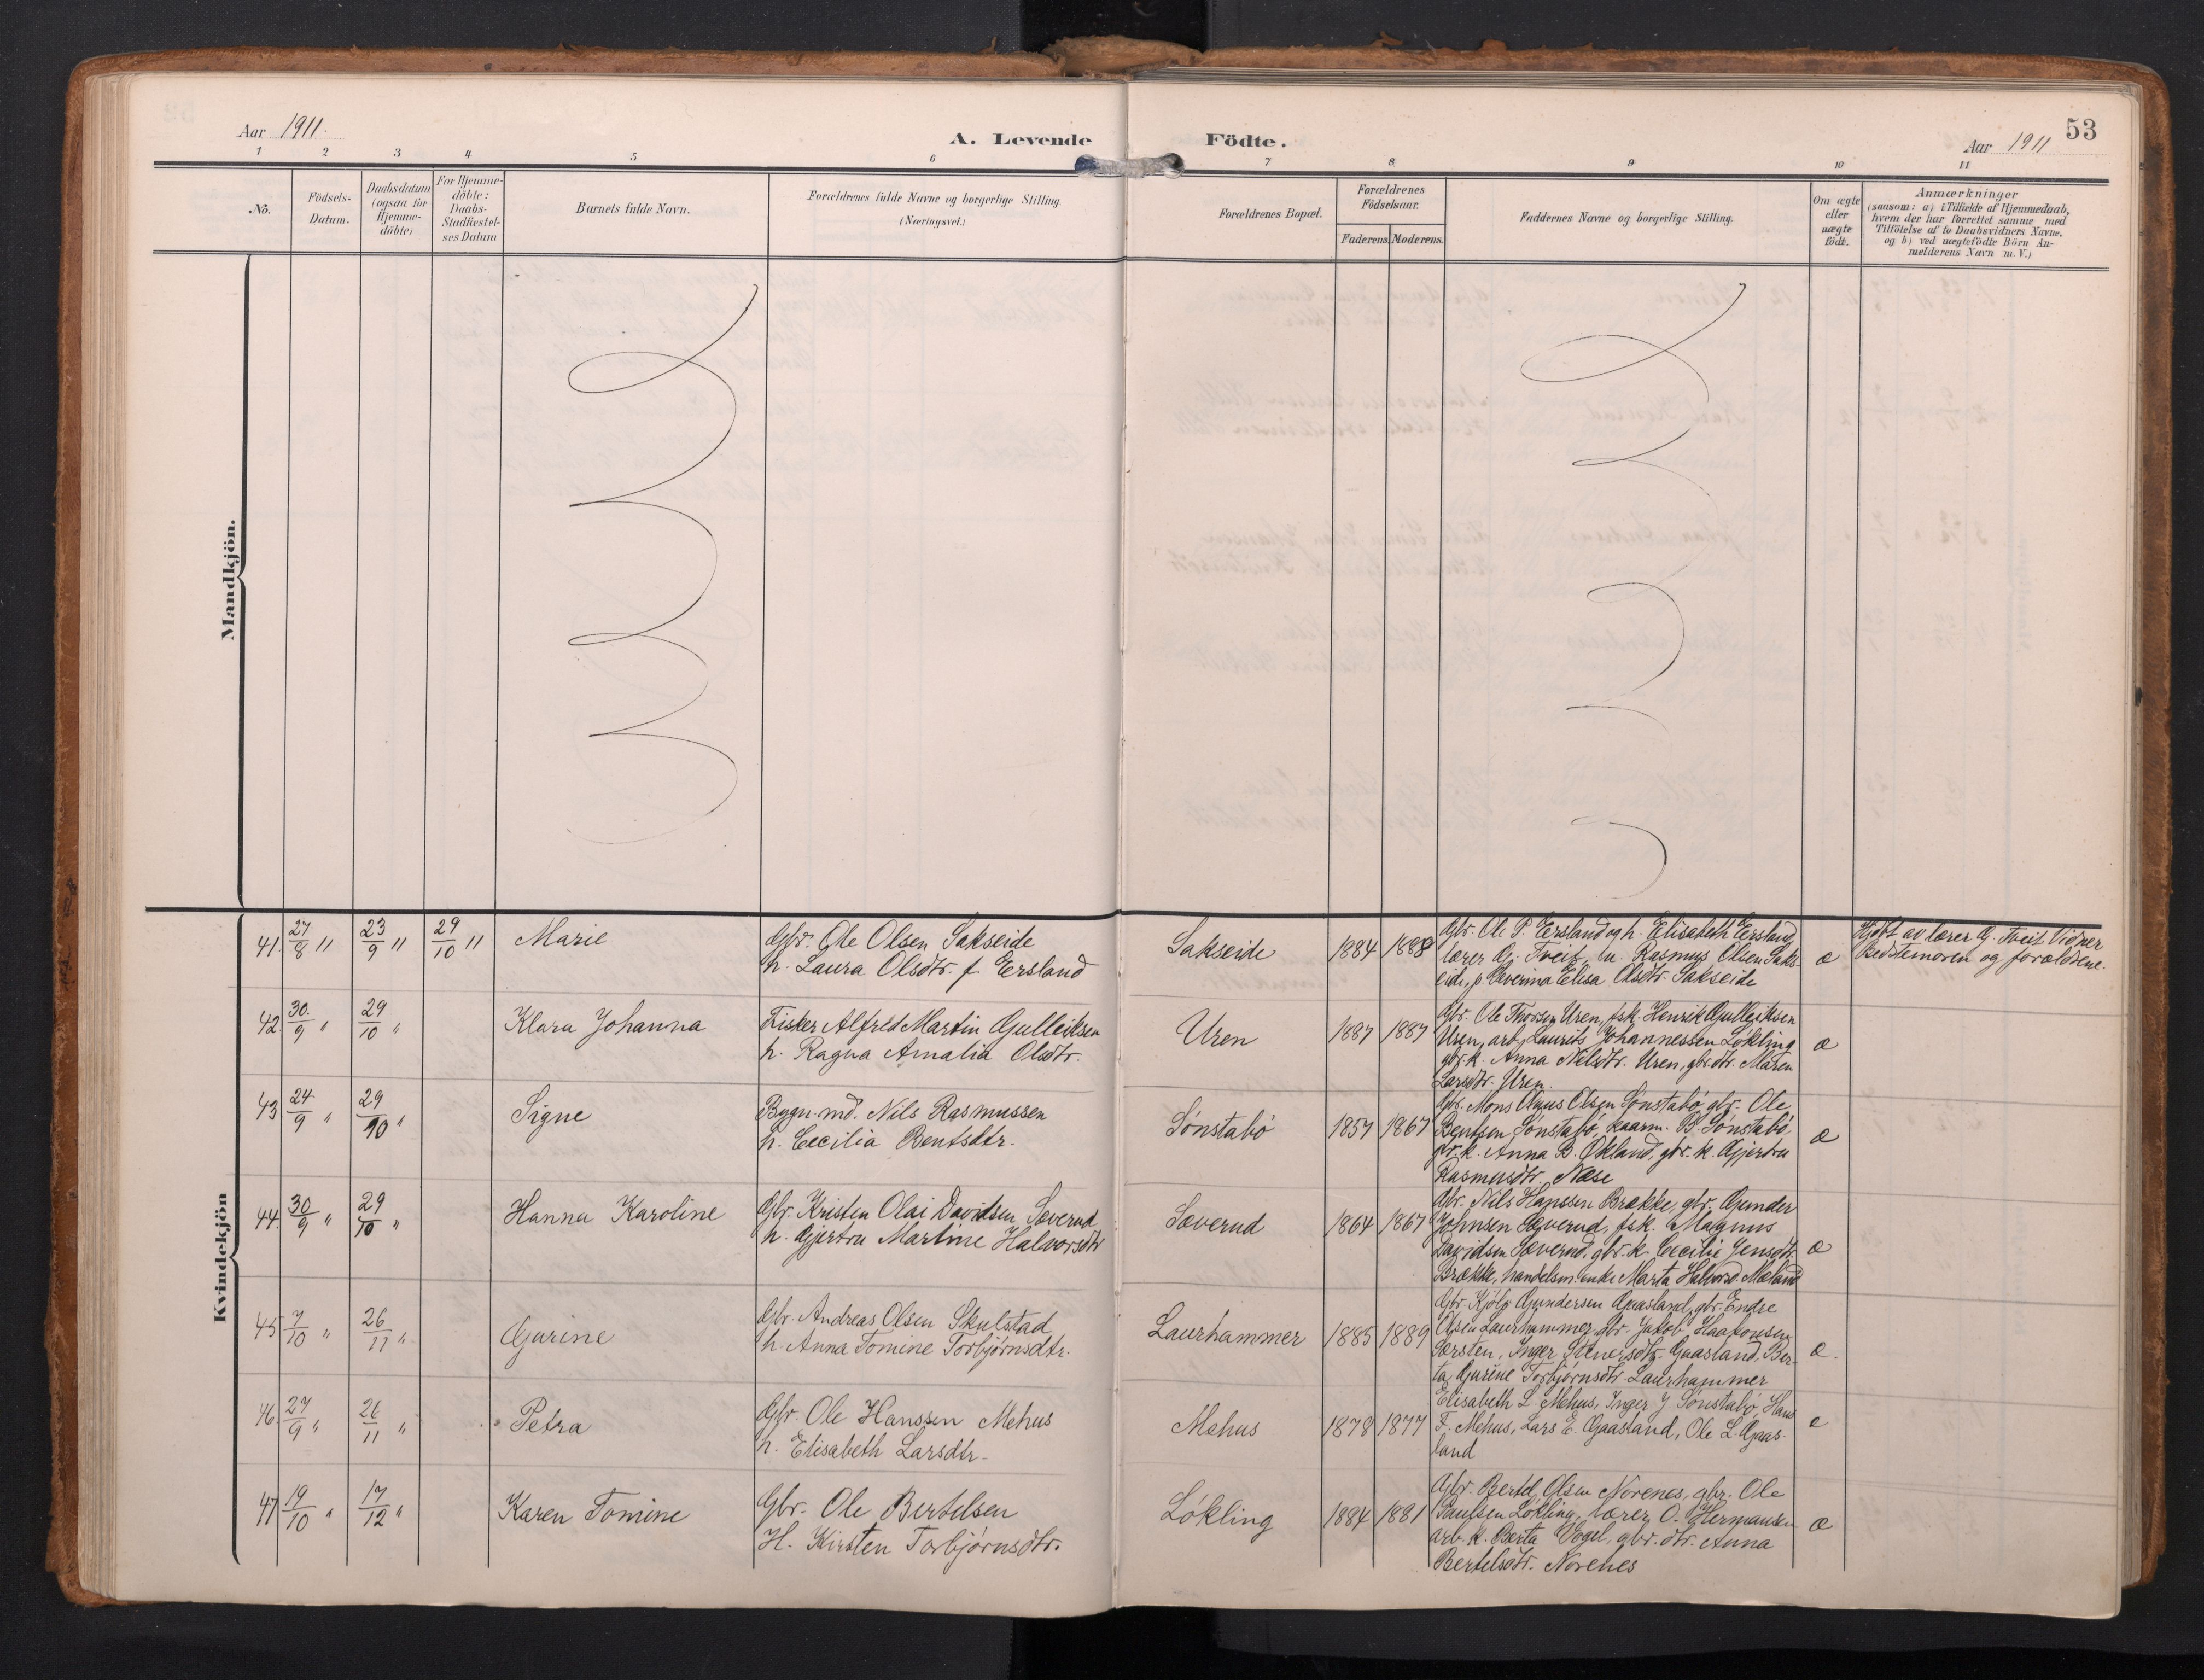 Aar 1911.
A. Levende Födte.
Aar 1911
53
1 2 3 4 5 6 7 8 9 10 11
No.
Födsels-
Datum.
Daabsdatum
(ogsaa for
Hjemme-
döbte)
For Hjemme-
döbte:
Daabs-
Stadfæstel-
ses Datum
Barnets fulde Navn.
Forældrenes fulde Navne og borgerlige Stilling.
(Næringsvei.)
Forældrenes Bopæl.
Forældrenes
Födselsaar.
Faderens. Moderens.
Faddernes Navne og borgerlige Stilling.
Om ægte
eller
uægte
födt.
Anmærkninger
(saasom: a) i Tilfælde af Hjemmedaab,
hvem der har forrettet samme med
Tilföielse af to Daabsvidners Navne,
og b) ved uægtefödte Börn An-
melderens Navn m. V.)
Mandkjön.
Kvindekjön
41. 27/8 " 23/9 " 29/10 " Marie
Gbr. Ole Olsen Sakseide
h. Laura Olsdtr. f. Eersland
Sakseide 1884 1888
Gbr. Ole P. Eersland og h. Elisabeth Eersland,
lærer G. Tveit, u. Rasmus Olsen Saks-
eide, p. Severina Elisa Olsdtr. Sakseide
æ
Hjdøbt av lærer G. Tveit Vidner
Bedstemoren og forældrene.
42 30./9 " 29/10 " Klara Johanna
Fisker Alfred Martin Gulleiksen
h. Ragna Amalia Olsdtr.
Uren 1887 1887
Gbr. Ole Thorsen Uren, fsk. Henrik Gulleiksen
Uren, arb. Laurits Johannessen Løkling
gbr. k. Anna Nilsdtr. Uren, gbr. dtr. Maren
Larsdtr. Uren.
æ
43 24/9 " 29/10 " Signe
Bygn. md. Nils Rasmussen
h. Cecilia Bentsdtr.
Sønstabø 1857 1867
Gbr. Mons Olaus Olsen Sønstabø, gbr. Ole
Bentsen Sønstabø, kaarm. B. Sønstabø,
gbr. k. Anna B. Økland, gbr. k. Gjertru
Rasmusdtr. Næse
æ
44. 30/9 " 29/10 " Hanna Karoline
Gbr. Kristen Olai Davidsen Sæverud
h. Gjertru Martine Halvorsdtr
Sæverud 1864 1867
Gbr. Nils Hanssen Brække, gbr. Gunder
Johnsen Sæverud, fsk. Magnus
Davidsen Sæverud, gbr. k. Cecilie Jensdtr.
Brække, handelsm. enke Marta Halvorsd. Mæland
æ
45 7/10 " 26/11 " Gurine
Gbr. Andreas Olsen Skulstad
h. Anna Tomine Torbjørnsdtr.
Laurhammer 1885 1889
Gbr. Kjølg Gundersen Gaasland, gbr. Endre
Olsen Laurhammer, gbr. Jakob Haakonsen
Særsten, Inger Stenersdtr. Gaasland, Ber-
ta Gurine Torbjørnsdtr. Laurhammer
æ.
46. 27/9 " 26/11 " Petra
Gbr Ole Hanssen Mehus
h. Elisabeth Larsdtr.
Mehus 1878 1877
Elisabeth L. Mehus, Inger J Sønstabø, Hans
F. Mehus, Lars E. Gaasland, Ole L. Gaas-
land
æ
47 19/10 " 17/12 " Karen Tomine
Gbr. Ole Bertelsen
H. Kirsten Torbjørnsdtr.
Løkling 1884 1881
Gbr. Bertel Olsen Norenes, gbr. Ole
Paulsen Løkling, lærer O. Hermansen
arb. k. Berta Vogel, gbr. dtr. Anna
Bertelsdtr. Norenes
æ